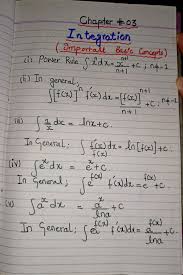 Chapter # 03
Integration
(Important Basic Concepts)
(i) Power Rule ∫xⁿdx = xⁿ⁺¹/n+1 + C ; n≠-1
(ii) In general,
∫[f(x)]ⁿ f'(x)dx = [f(x)]ⁿ⁺¹/n+1 + C ; n≠-1
(iii) dx = lnx + C.
In General; dx = ln[f(x)] + C.
(iv) ∫eˣdx = eˣ + C.
In General; ∫e^f(x) f'(x)dx = e^f(x) + C.
(v) ∫aˣdx = aˣ/lna + C
In General; f'(x)dx = a^f(x)/lna + C